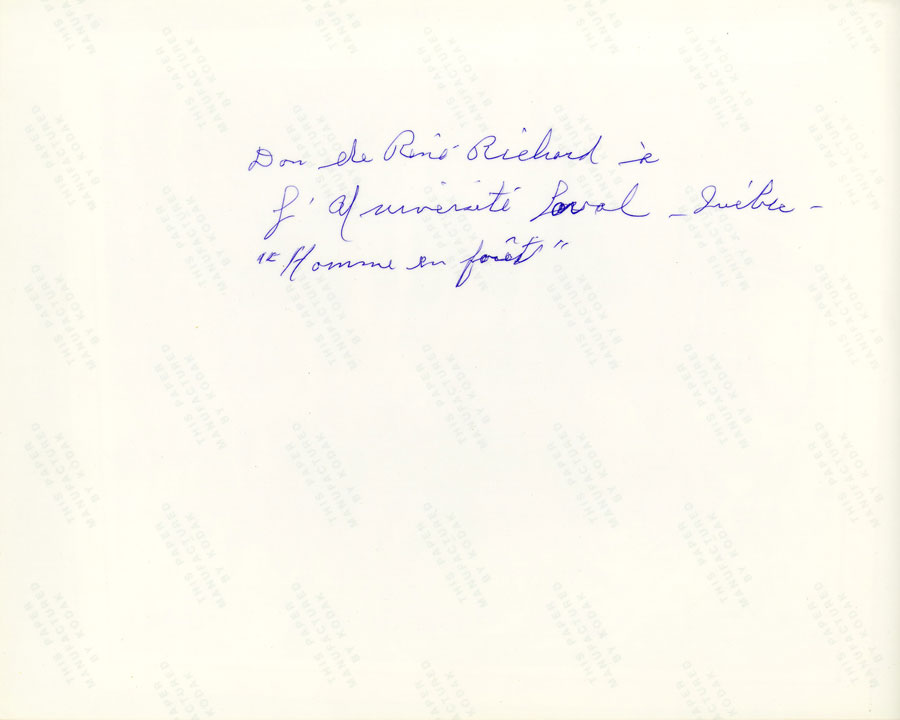 Don de René Richard à
L'Université Laval - Québec -
"Homme en forêt"
THIS PAPER
MANUFACTURED
BY KODAK